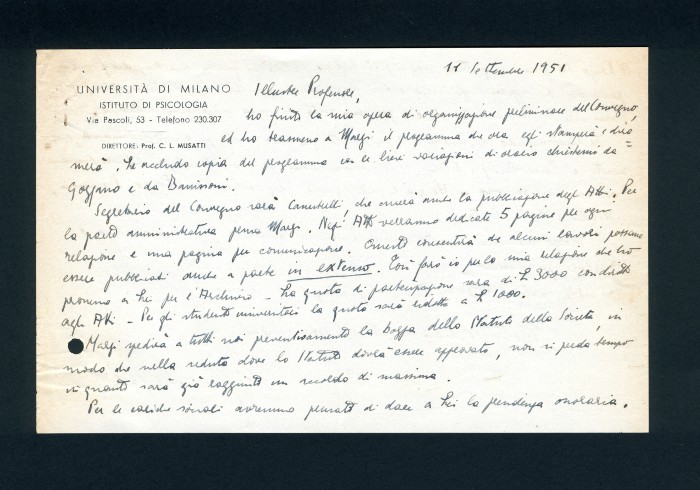 11 Settembre 1951
UNIVERSITÀ DI MILANO
ISTITUTO DI PSICOLOGIA
Via Pascoli, 53 - Telefono 230.307
DIRETTORE: Prof. C. L. MUSATTI
Illustre Professore,
ho finito la mia opera di organizzazione preliminare del Convegno,
ed ho trasmesso a Marzi il programma che ora egli stamperà e dira
merà. Le accludo copia del programma con le lievi variazioni di orario chiestemi da
Gozzano e da Banissoni.
Segretario del Convegno sarà Canestrelli, che curerà anche la pubblicazione degli Atti. Per
la parte amministrativa pensa Marzi. Negli Atti verranno dedicate 5 pagine per ogni
relazione e una pagina per comunicazione. Questo consentirà che alcuni lavori possano
essere pubblicati anche a parte in extenso. Così farò io per la mia relazione che ho
promesso a Lei per l'Archivio. La quota di partecipazione sarà di £ 3000 con diritto
agli Atti - Per gli studenti universitari la quota sarà ridotta a £ 1000.
Marzi spedirà a tutti noi preventivamente la bozza dello Statuto della Società, in
modo che nella seduta dove lo Statuto dovrà essere approvato, non si perda tempo
in quanto sarà già raggiunto un accordo di massima.
Per le cariche sociali avremmo pensato di dare a Lei la presidenza onoraria.